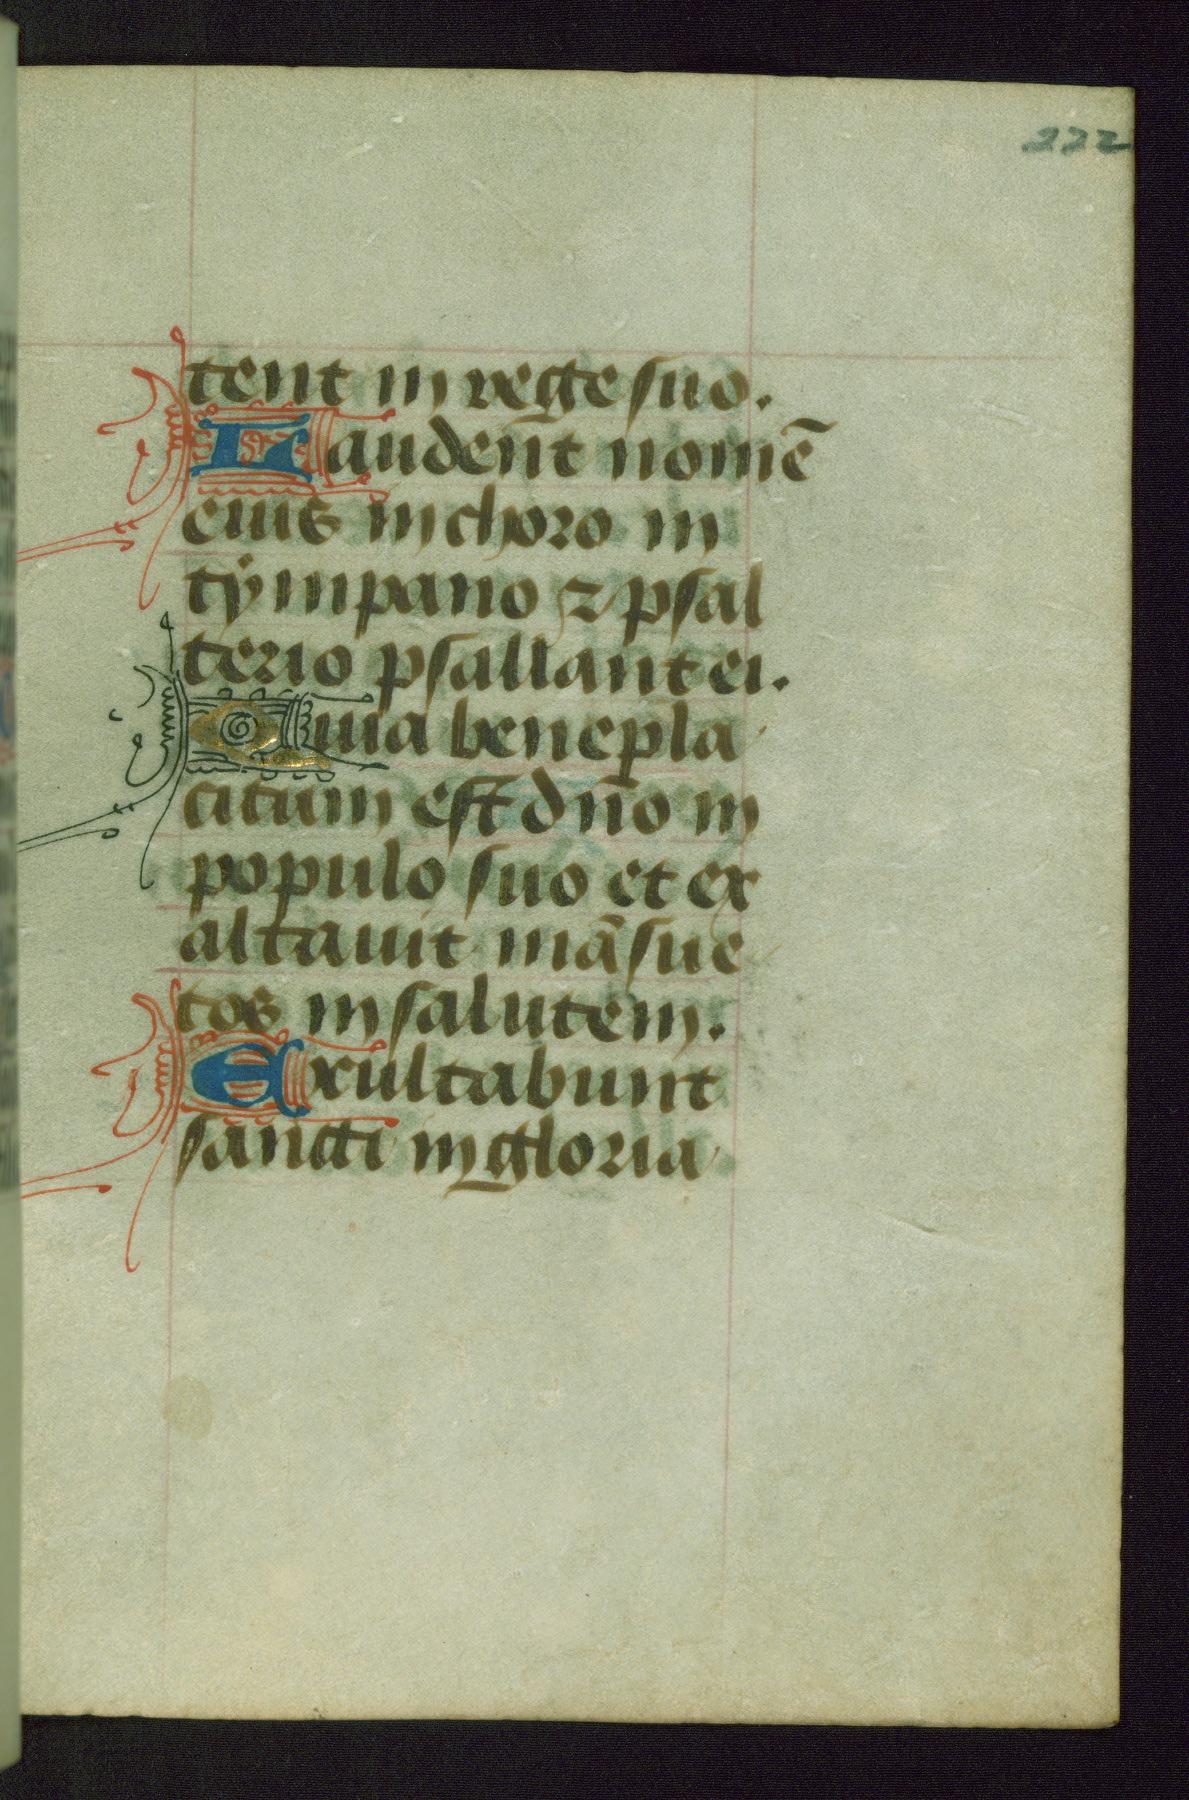 222
tent in rege suo.
Laudent nomē
eius in choro in
tÿmpano ⁊ psal
terio psallant ei.
Quia benepla
citum est dn̄o in
populo suo et ex
altauit māsue
tos in salutem.
Exultabunt
sancti in gloria